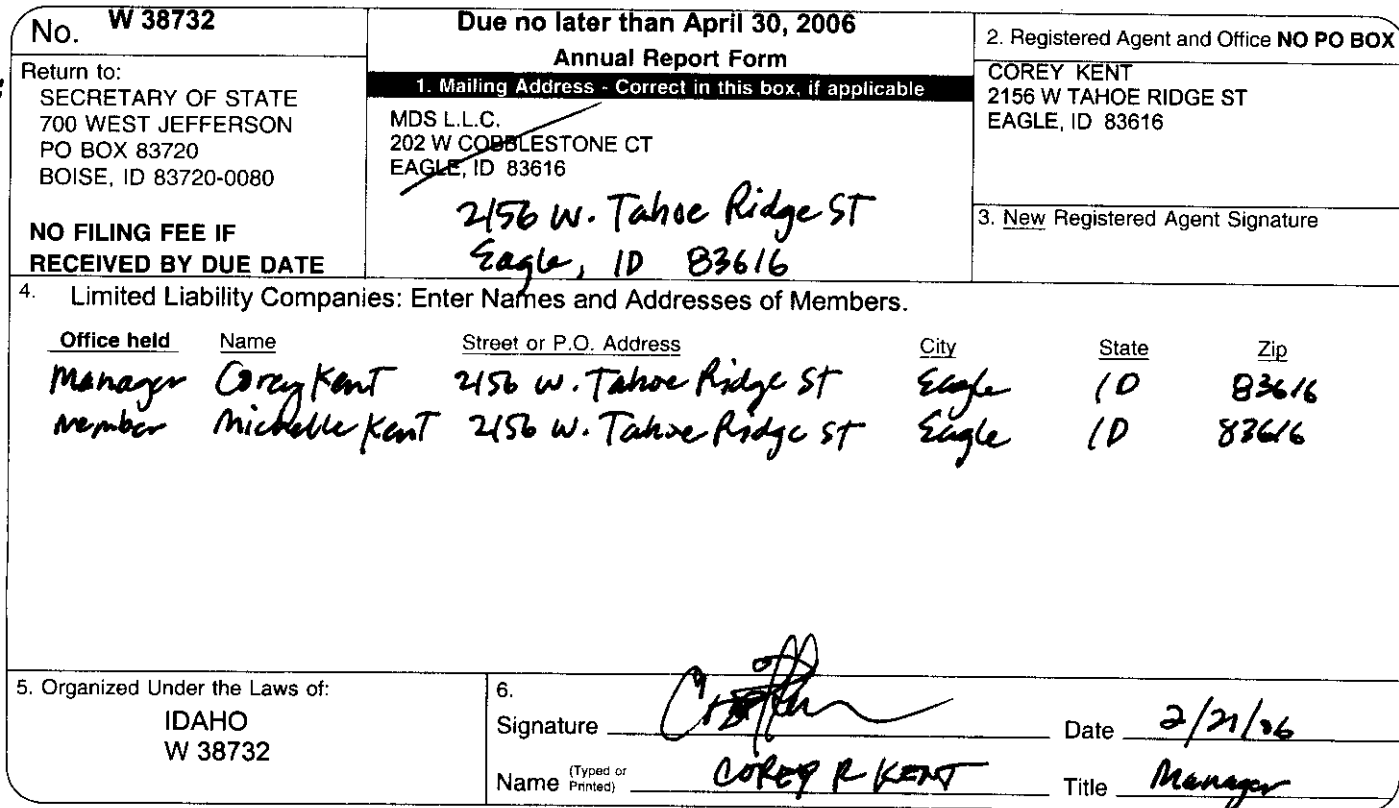 No. W 38732
Return to:
SECRETARY OF STATE
700 WEST JEFFERSON
PO BOX 83720
BOISE, ID 83720-0080
NO FILING FEE IF
RECEIVED BY DUE DATE
Due no later than April 30, 2006
Annual Report Form
1. Mailing Address - Correct in this box, if applicable
MDS L.L.C.
202 W COBBLESTONE CT
EAGLE, ID 83616
2156 W. Tahoe Ridge ST
Eagle, ID 83616
2. Registered Agent and Office NO PO BOX
COREY KENT
2156 W TAHOE RIDGE ST
EAGLE, ID 83616
3. New Registered Agent Signature
4. Limited Liability Companies: Enter Names and Addresses of Members.
Office held Name Street or P.O. Address City State Zip
Manager Corey Kent 2156 W. Tahoe Ridge ST Eagle ID 83616
Member Michelle Kent 2156 W. Tahoe Ridge ST Eagle ID 83616
5. Organized Under the Laws of:
IDAHO
W 38732
6.
Signature Date
Name (Typed or Printed) COREY R KENT Title Manager